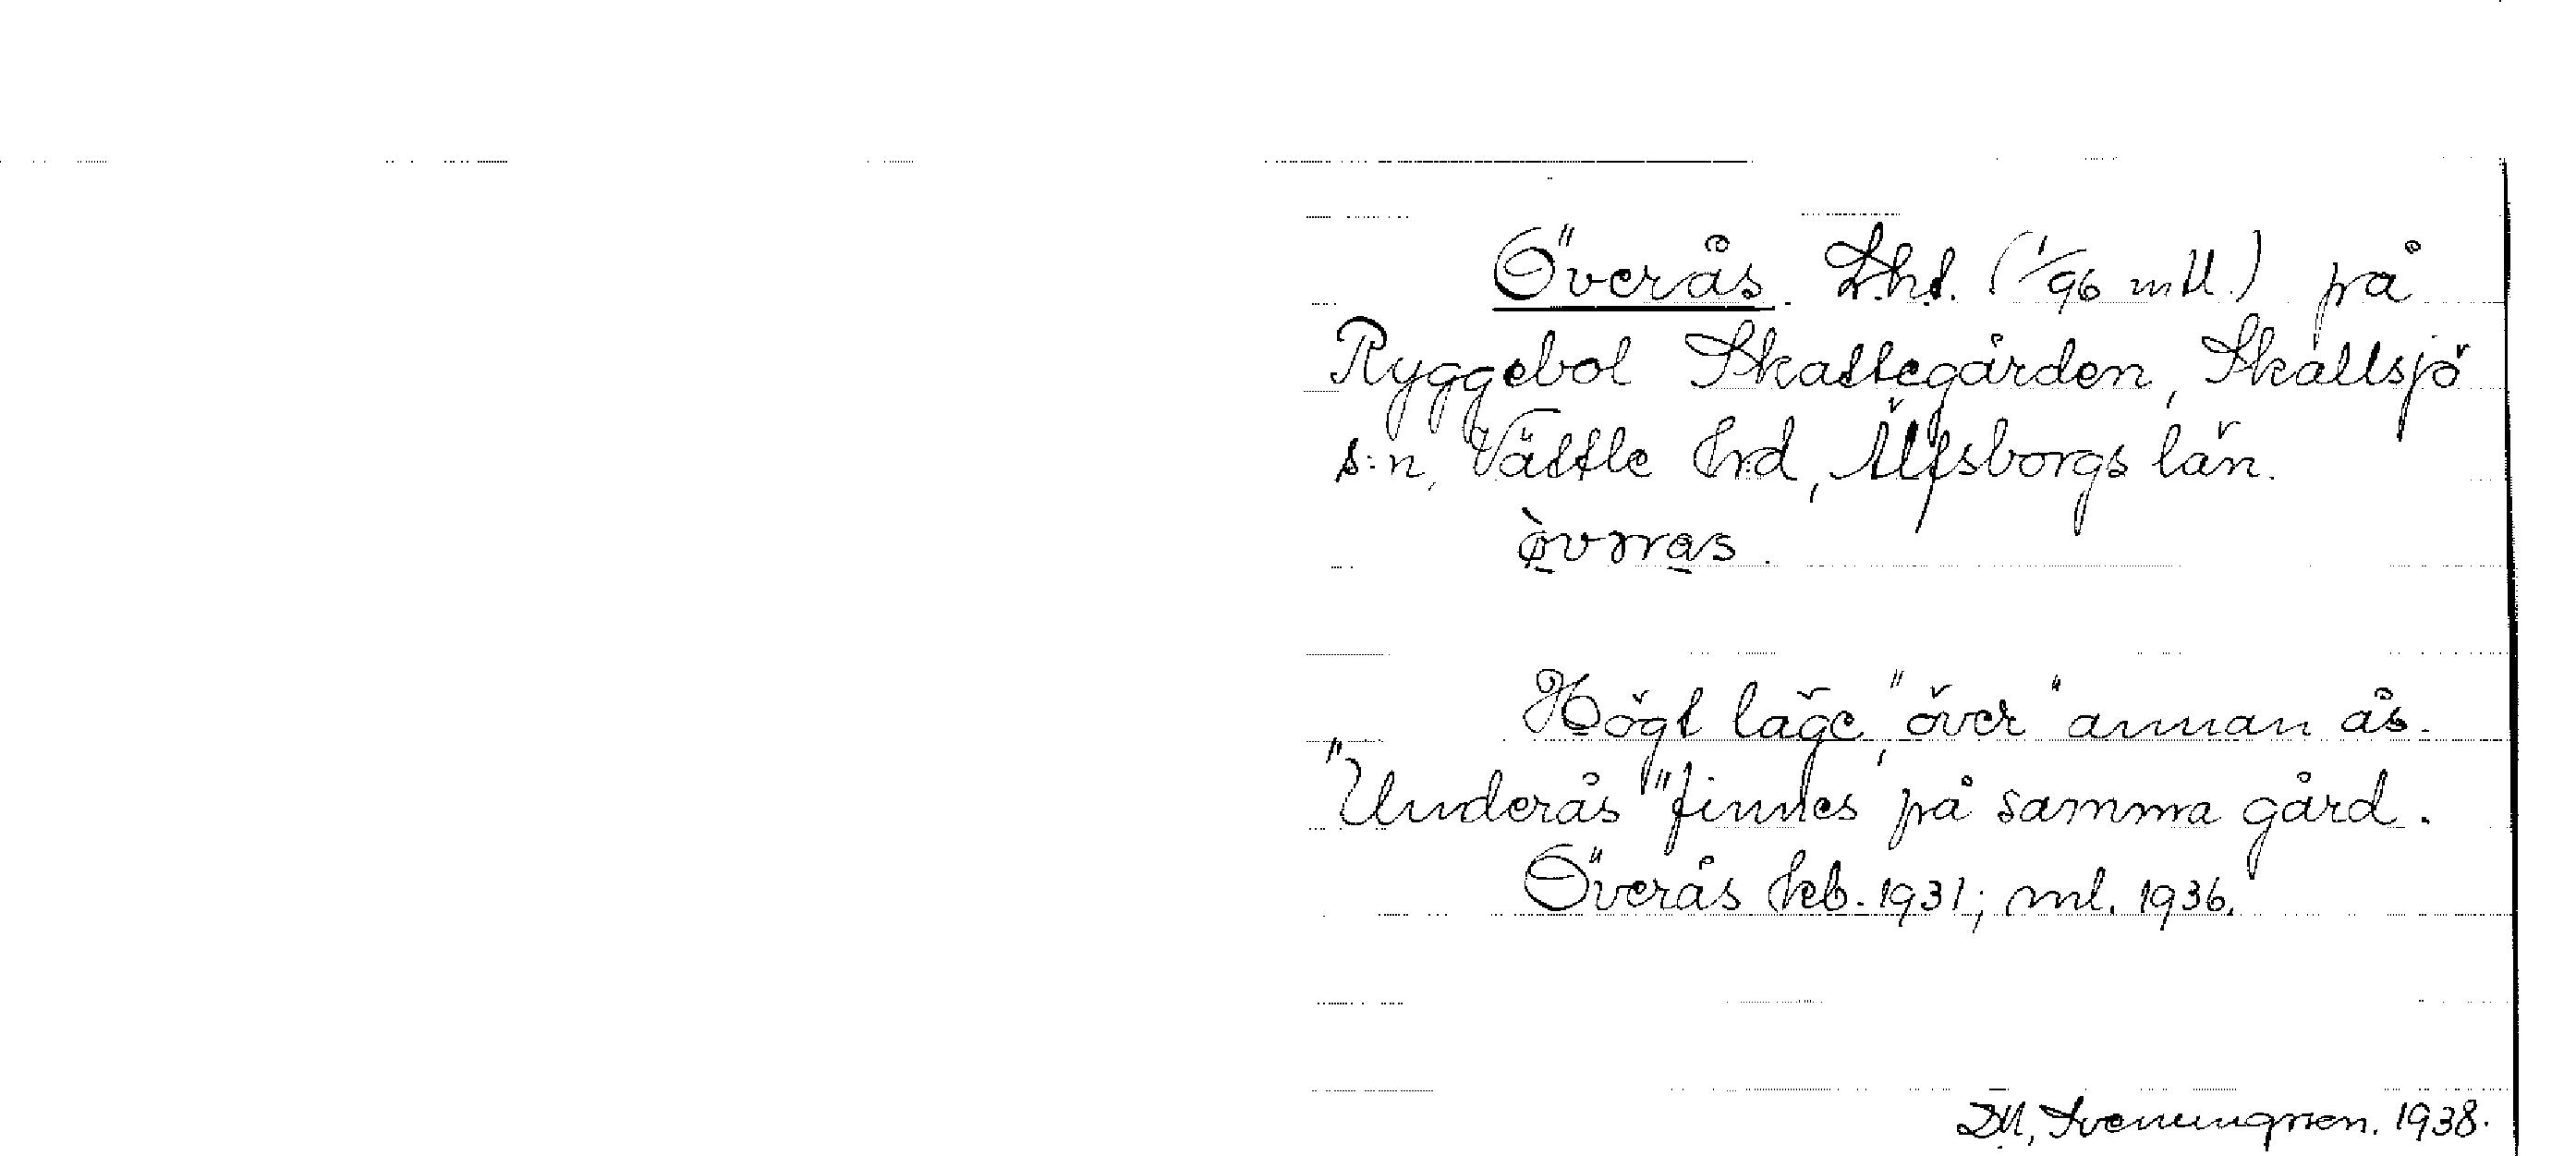 Överås. Lht. (1/96 mtl.) på
Ryggebol Skattegården, Skallsjö
s:n, Vättle hrd, Älfsborgs län.
Högt läge, "över" annan ås.
"Underås" finnes på samma gård.
Överås heb. 1931; ml. 1936.
Sveningsson. 1938.